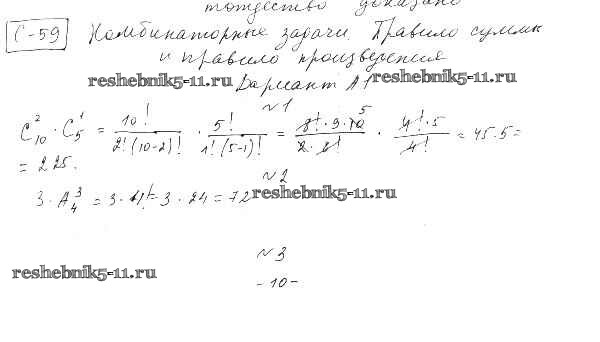 тождество доказано
С-59 Комбинаторные задачи. Правило суммы
и правило произведения
reshebnik5-11.ru Вариант А1 reshebnik5-11.ru
№1
C²₁₀ · C¹₅ = 10!/2!(10-2)! · 5!/1!(5-1)! = 8!·9·10 5/2·8! · 4!·5/4! = 45·5=
= 225.
№2
3·A³₄ = 3·4! = 3·24 = 72 reshebnik5-11.ru
№3
reshebnik5-11.ru
-10-